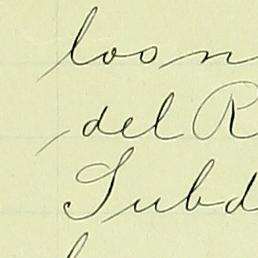 los n
del R
Subd